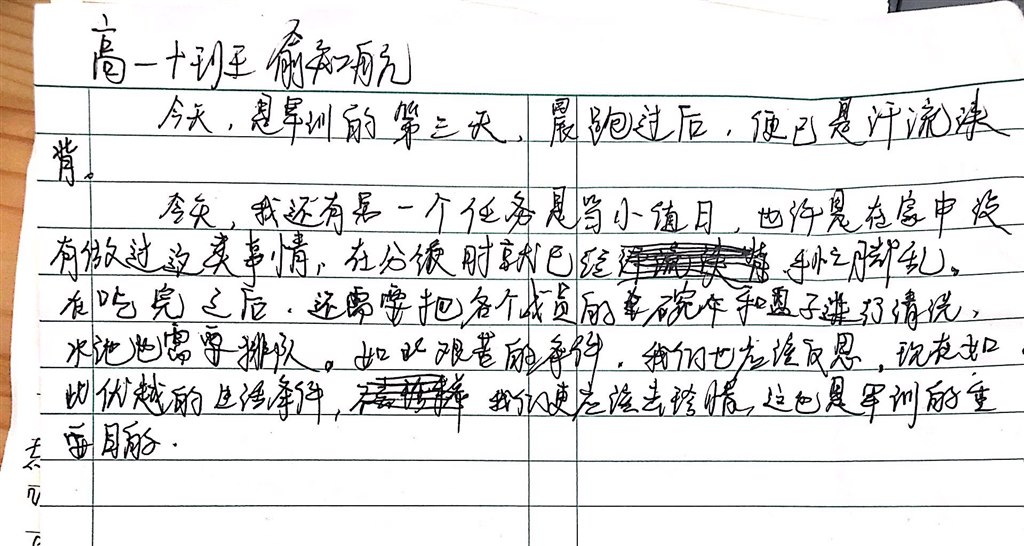 高一十班 俞知航
今天，是军训的第三天，晨跑过后，便已是汗流浃
背。
今天，我还有另一个任务是当小值日，也许是在家中没
有做过这类事情，在分餐时就已经手忙脚乱。
在吃完之后，还需要把各个成员的碗和盘子进行清洗，
水池也需要排队。如此艰苦的条件，我们也应该反思，现在如
此优越的生活条件，我们更应该去珍惜，这也是军训的重
要目的.